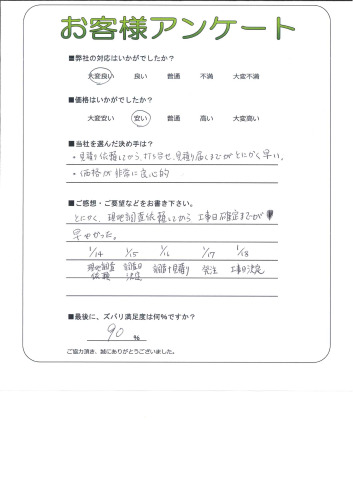 お客様アンケート
■弊社の対応はいかがでしたか?
大変良い 良い 普通 不満 大変不満
■価格はいかがでしたか?
大変安い 安い 普通 高い 大変高い
■当社を選んだ決め手は?
・見積り依頼してから、打ち合せ、見積り届くまでがとにかく早い。
・価格が非常に良心的
■ご感想・ご要望などをお書き下さい。
とにかく、現地調査依頼してから 工事日確定までが
早かった。
1/14 1/15 1/16 1/17 1/18
現地調査 調査日 調査+見積り 発注 工事日決定
依頼 決定
■最後に、ズバリ満足度は何%ですか?
90 %
ご協力頂き、誠にありがとうございました。